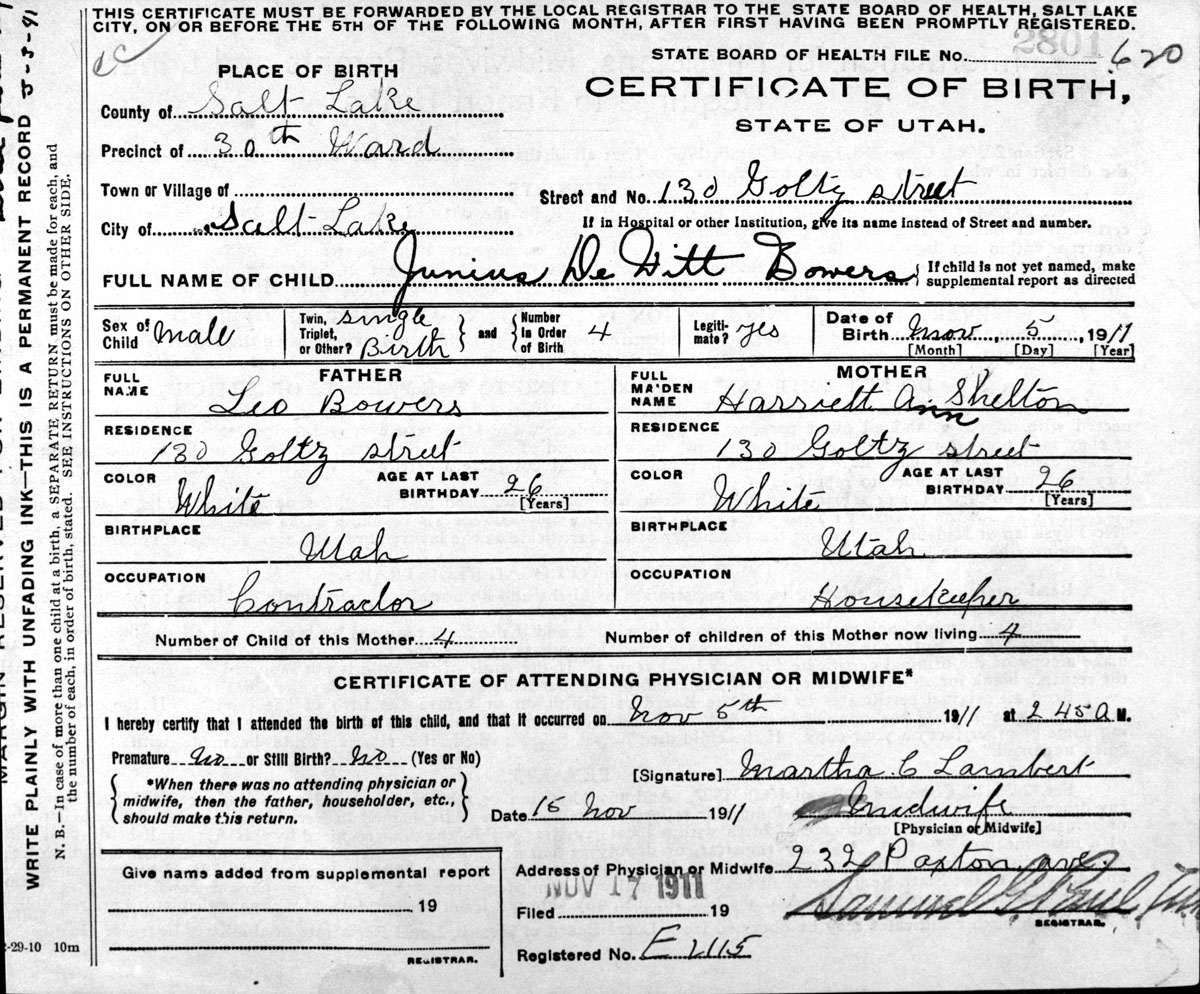 THIS CERTIFICATE MUST BE FORWARDED BY THE LOCAL REGISTRAR TO THE STATE BOARD OF HEALTH, SALT LAKE
CITY, ON OR BEFORE THE 5TH OF THE FOLLOWING MONTH, AFTER FIRST HAVING BEEN PROMPTLY REGISTERED.
STATE BOARD OF HEALTH FILE No. 2801 620
PLACE OF BIRTH
CERTIFICATE OF BIRTH,
STATE OF UTAH.
County of Salt Lake
Precinct of 30th Ward
Town or Village of
Street and No. 130 Goltz street
City of Salt Lake
If in Hospital or other Institution, give its name instead of Street and number.
FULL NAME OF CHILD Junius De Witt Bowers
If child is not yet named, make
supplemental report as directed
Sex of Child male
Twin, Triplet, or Other? single Birth
and
Number in Order of Birth 4
Legiti-mate? yes
Date of Birth Nov 5, 1911
[Month] [Day] [Year]
FATHER
FULL NAME Leo Bowers
RESIDENCE
130 Goltz street
COLOR White
AGE AT LAST BIRTHDAY 26
[Years]
BIRTHPLACE
Utah
OCCUPATION
Contractor
MOTHER
FULL MAIDEN NAME Harriett Ann Shelton
RESIDENCE
130 Goltz street
COLOR White
AGE AT LAST BIRTHDAY 26
[Years]
BIRTHPLACE
Utah
OCCUPATION
Housekeeper
Number of Child of this Mother 4
Number of children of this Mother now living 4
CERTIFICATE OF ATTENDING PHYSICIAN OR MIDWIFE*
I hereby certify that I attended the birth of this child, and that it occurred on Nov 5th 1911 at 2 45 A M.
Premature No or Still Birth? No (Yes or No)
*When there was no attending physician or
midwife, then the father, householder, etc.,
should make this return.
[Signature] Martha C Lambert
Date 15 Nov 1911
Midwife
[Physician or Midwife]
Give name added from supplemental report
19
REGISTRAR.
Address of Physician or Midwife 232 Paxton ave.
NOV 17 1911
Filed 19
Samuel G. Paul
REGISTRAR.
Registered No. E 2115
MARGIN RESERVED FOR
WRITE PLAINLY WITH UNFADING INK—THIS IS A PERMANENT RECORD
N. B.—In case of more than one child at a birth, a SEPARATE RETURN must be made for each, and
the number of each, in order of birth, stated. SEE INSTRUCTIONS ON OTHER SIDE.
-29-10 10m